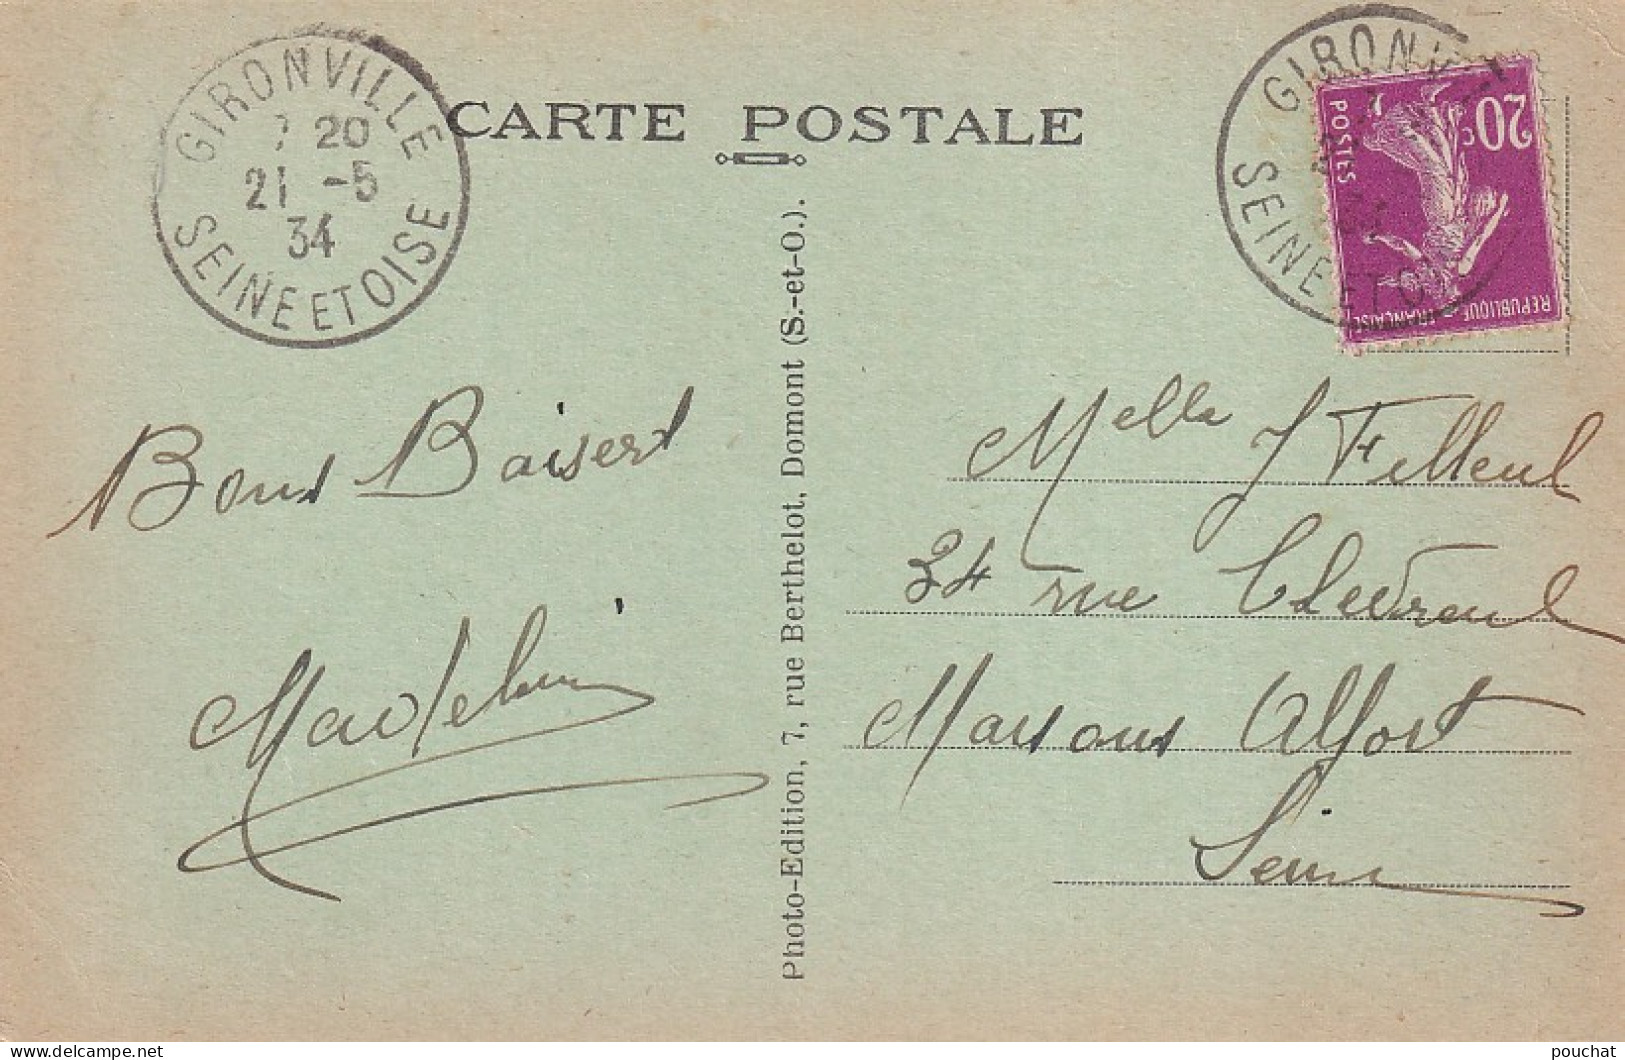 GIRONVILLE
7 20
21 -5
34
SEINE ET OISE
CARTE POSTALE
GIRONVI
SEINE ET O
20c
POSTES
REPUBLIQUE FRANÇAISE
Bons Baisers
Madeleine
Photo-Edition, 7, rue Berthelot, Domont (S.-et-O.).
Melle J Filleul
34 rue Chevreul
Maisons Alfort
Seine
pouchat